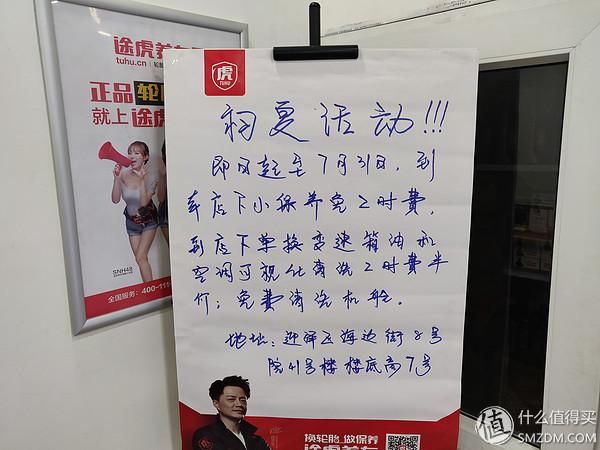 途虎养车
tuhu.cn | 轮胎
正品 轮
就上途虎
SNH48
全国服务：400-111
虎
TUHU
初夏活动!!!
即日起至7月31日，到
本店下小保养免工时費，
到店下单换变速箱油和
空调可视化清洗工时費半
价；免費清洗机舱。
地址：迎泽区海边街8号
院41号楼楼底商7号
换轮胎 做保养
途虎养车
值 什么值得买
SMZDM.COM